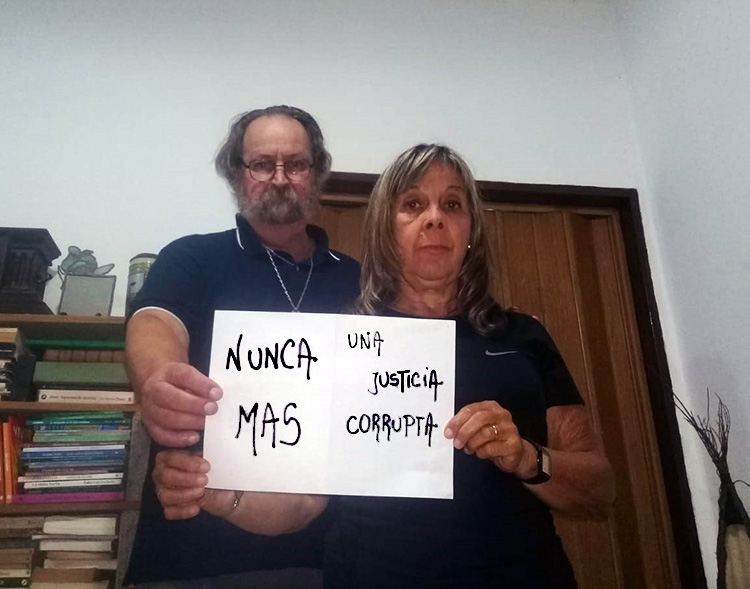 NUNCA
MAS
UNA
JUSTICIA
CORRUPTA